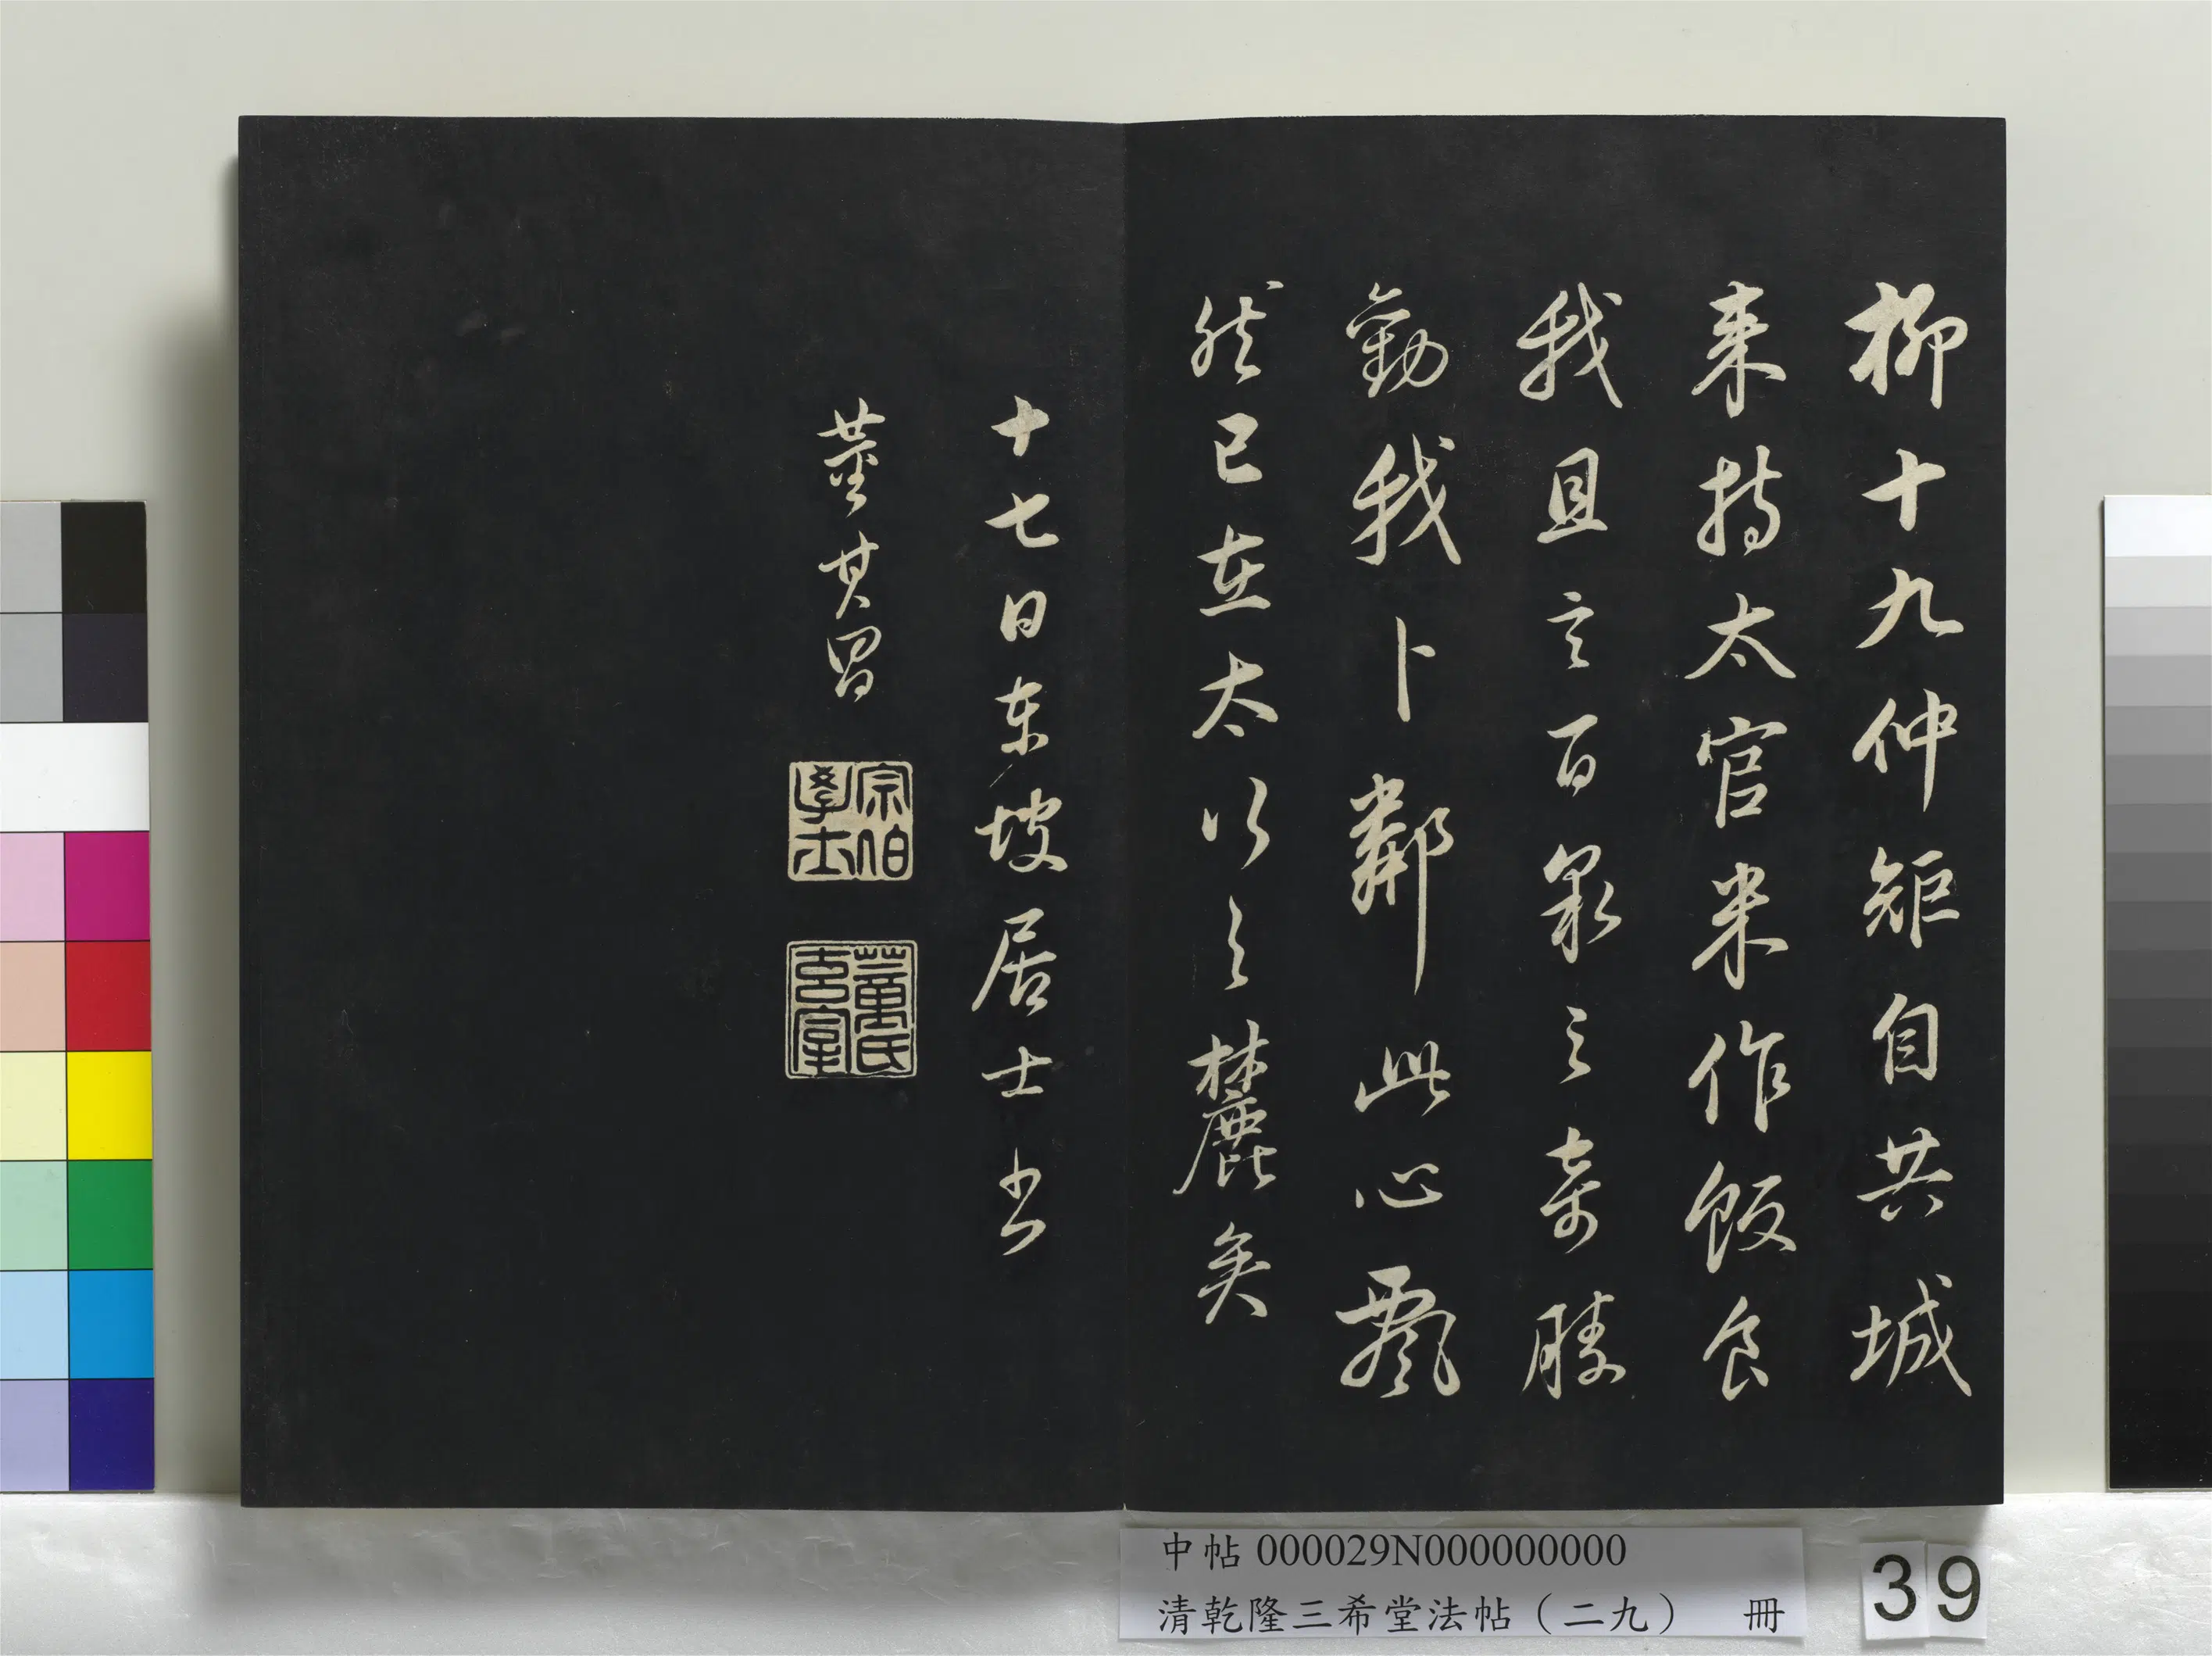 柳十九仲矩自共城
来持太官米作飯食
我且言百泉之奇勝
勸我卜鄰此心飄
然已在太行之麓矣
十七日東坡居士書
董其昌
宗伯學士
董氏玄宰
中帖 000029N000000000
清乾隆三希堂法帖（二九） 冊
39